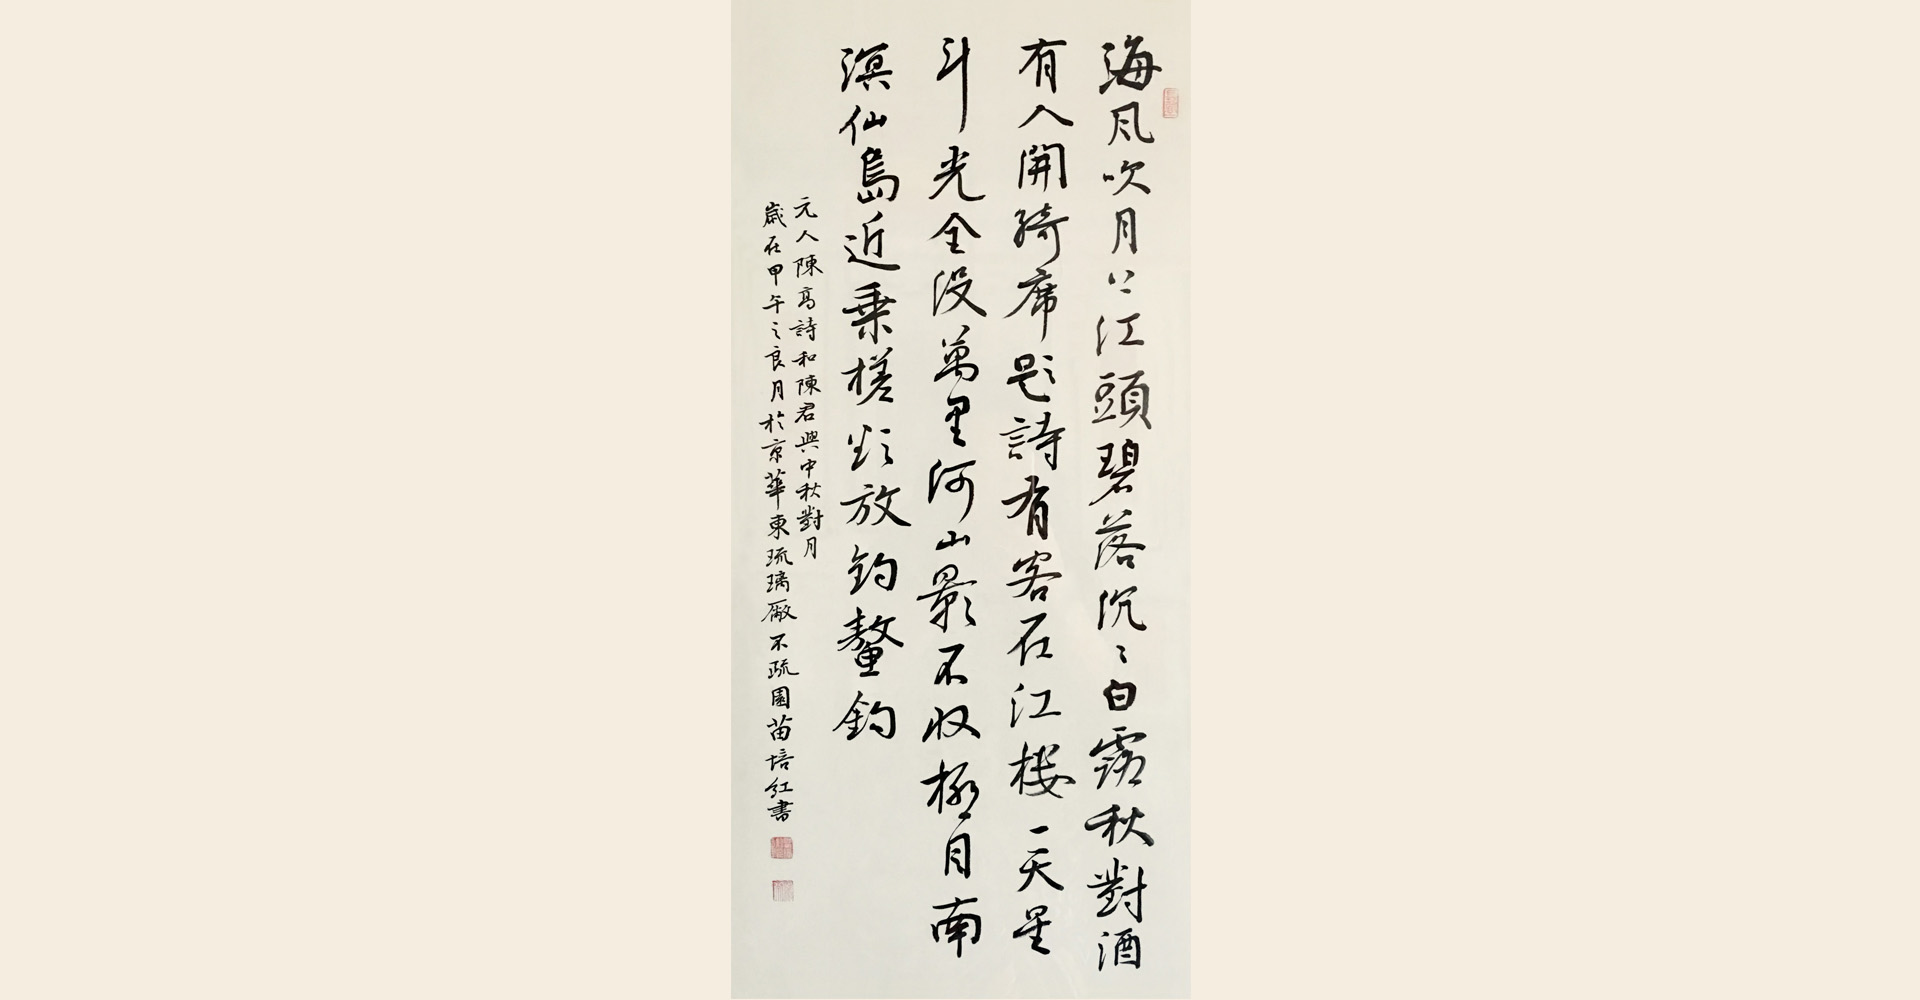 海風吹月上江頭碧落沉々白露秋對酒
有人開綺席題詩有客在江樓一天星
斗光全沒萬里河山影不收極目南
溟仙島近乘槎欲放釣鼇鈎
元人陳高詩和陳君與中秋對月
歲在甲午之良月於京華東琉璃廠不疏園苗培紅書